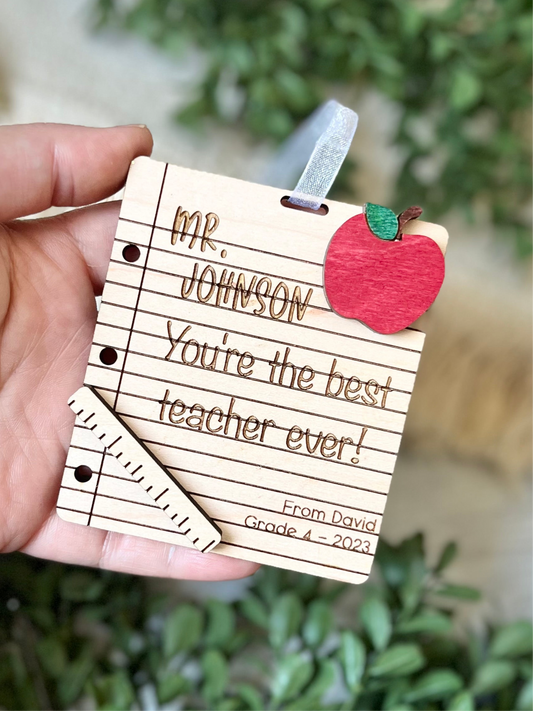 MR.
JOHNSON
You're the best
teacher ever!
From David
Grade 4 - 2023